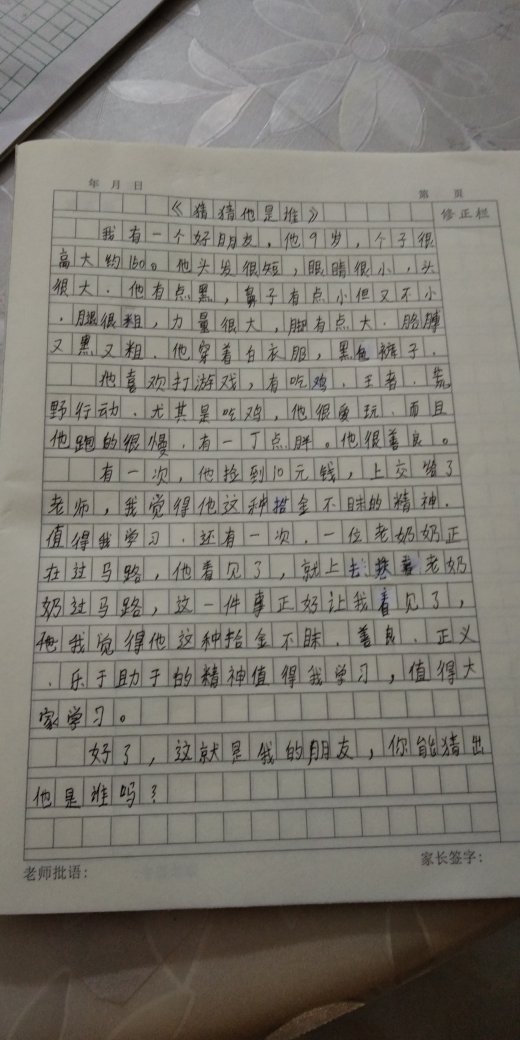 年 月 日
第 页
修正栏
《猜猜他是谁》
我有一个好朋友，他9岁，个子很
高大约160。他头发很短，眼睛很小，头
很大．他有点黑，鼻子有点小但又不小
．腿很粗，力量很大，脚有点大．胳膊
又黑又粗．他穿着白衣服，黑色裤子．
他喜欢打游戏，有吃鸡．王者．荒
野行动．尤其是吃鸡，他很爱玩．而且
他跑的很慢．有一丁点胖。他很善良。
有一次，他捡到10元钱，上交给了
老师，我觉得他这种拾金不昧的精神．
值得我学习．还有一次．一位老奶奶正
在过马路，他看见了，就上去 着老奶
奶过马路，这一件事正好让我看见了，
我觉得他这种拾金不昧．善良．正义
．乐于助于的精神值得我学习，值得大
家学习。
好了，这就是我的朋友，你能猜出
他是谁吗？
老师批语：
家长签字：